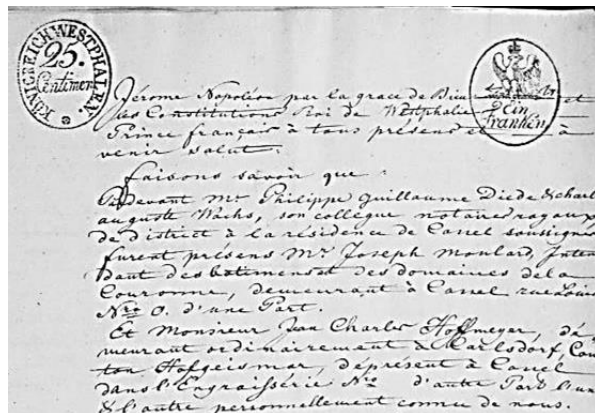 KÖNIGREICH WESTPHALEN.
25.
Centimen
Ein
Franken
Jérome Napoléon par la grace de Dieu et
les Constitutions Roi de Westphalie
Prince français à tous présens et à
venir salut.
faisons savoir que
Pardevant Mr. Philippe Guillaume Diede & Charl
auguste Wachs, son collègue notaires
de district à la résidence de Cassel soussigné
furent présens Mr. Joseph Moulard, Inten
dant des batimens et des domaines de la
Couronne, demeurant à Cassel rue Louis
Nro 0. d'une Part.
Et Monsieur Jean Charles Hoffmeyer, dé
meurant ordinairement à Carlsdorf, Can
ton Hofgeismar, à présent à Cassel
dans l'Engraisserie No d'autre Part l'un
& l'autre personnellement connu de nous.